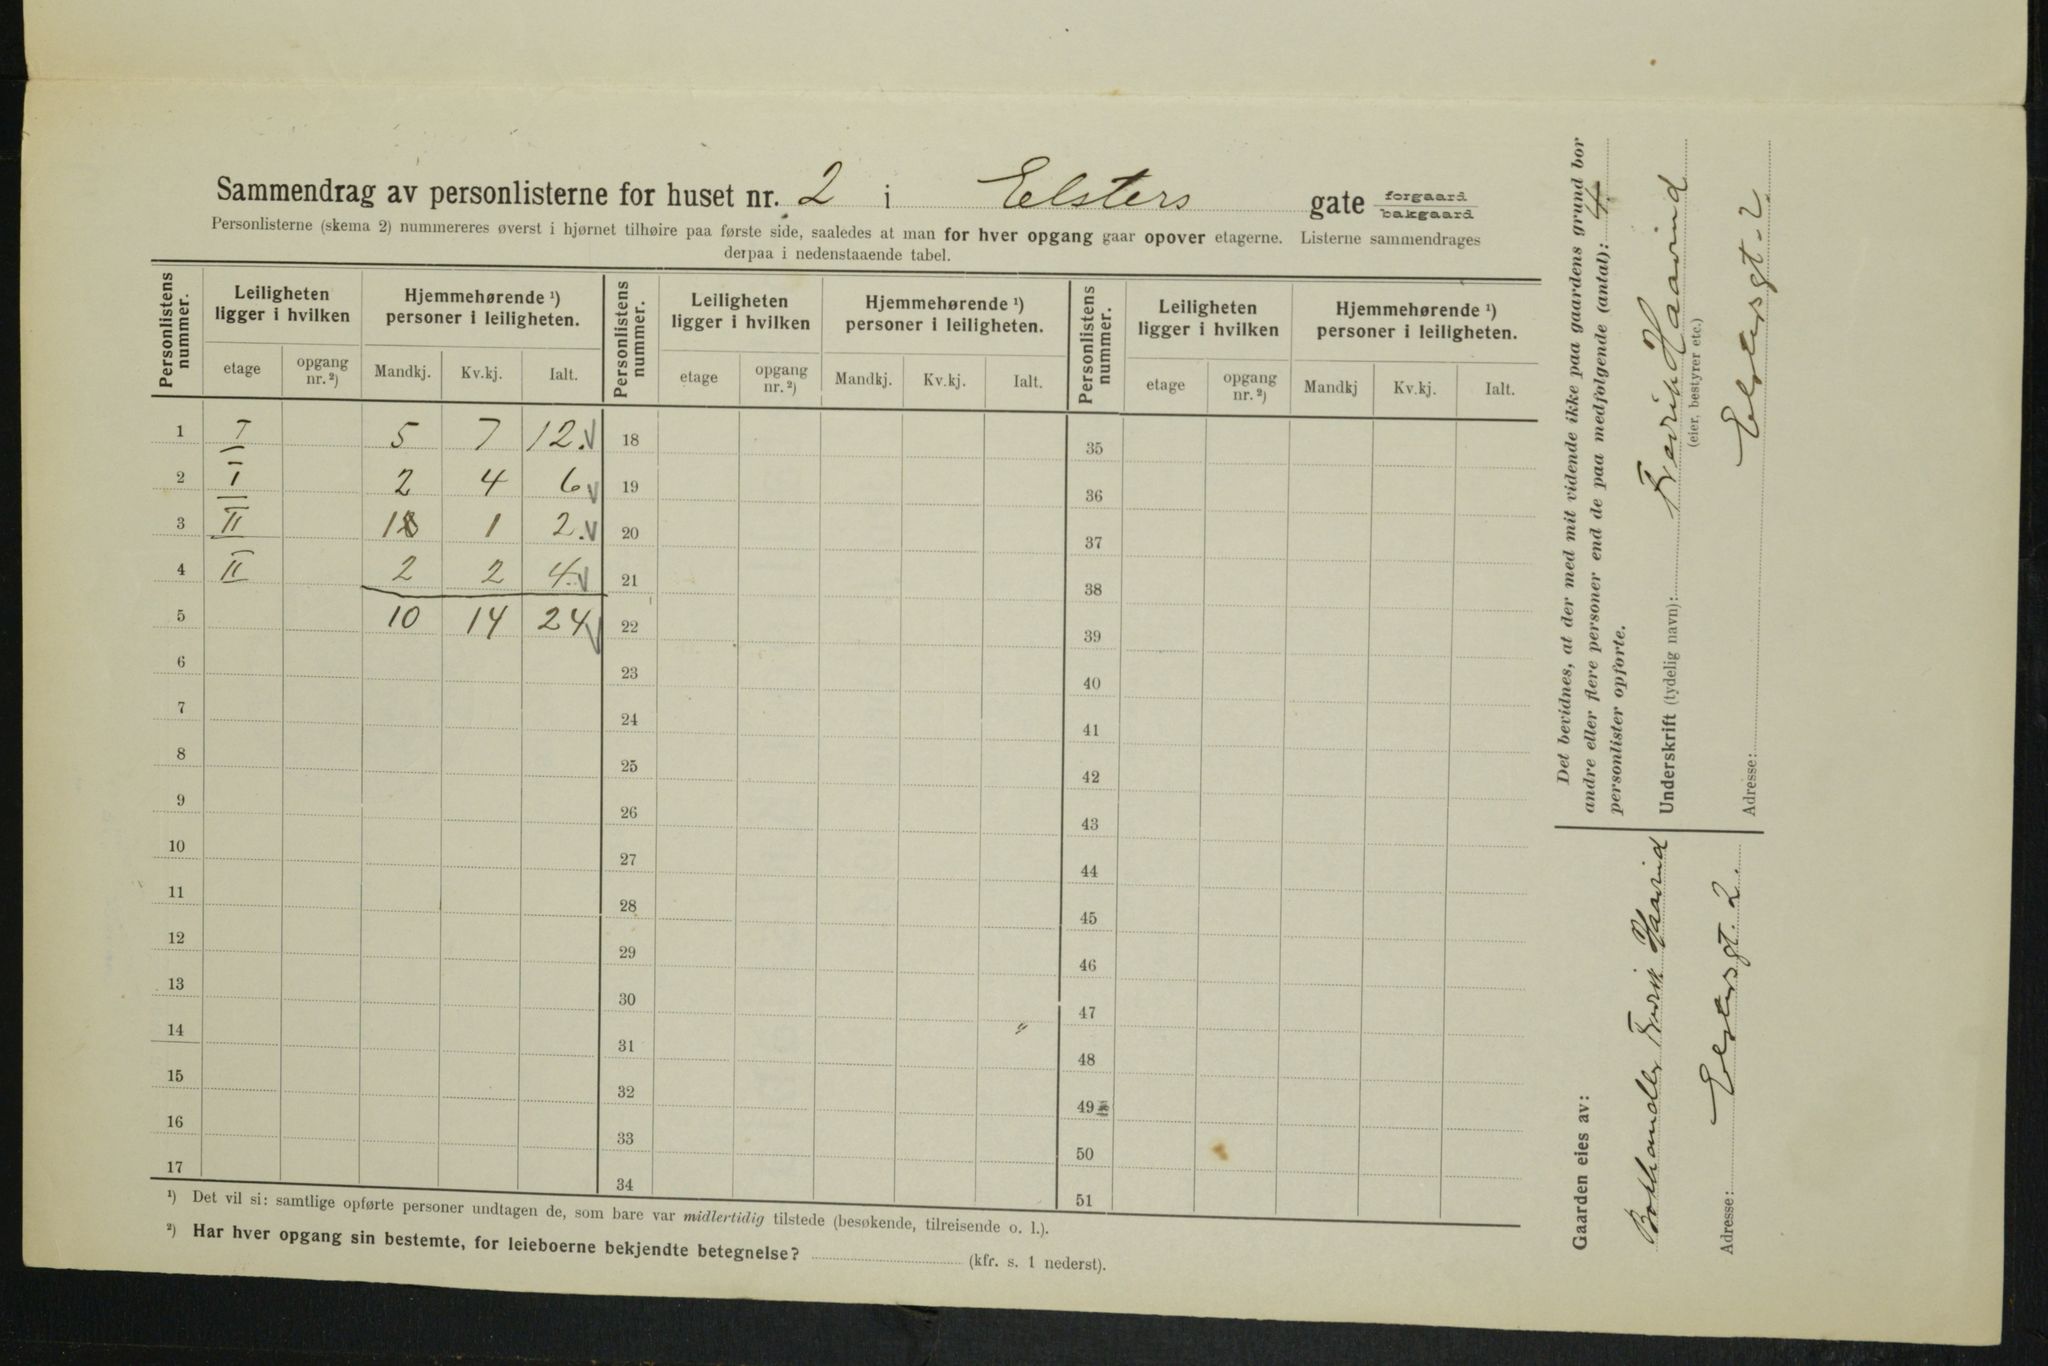 Sammendrag av personlisterne for huset nr. 2 i Elsters gate forgaard bakgaard
Personlisterne (skema 2) nummereres øverst i hjørnet tilhøire paa første side, saaledes at man for hver opgang gaar opover etagerne. Listerne sammendrages
derpaa i nedenstaaende tabel.
Personlistens nummer. Leiligheten ligger i hvilken Hjemmehørende ¹) personer i leiligheten. Personlistens nummer. Leiligheten ligger i hvilken Hjemmehørende ¹) personer i leiligheten. Personlistens nummer. Leiligheten ligger i hvilken Hjemmehørende ¹) personer i leiligheten.
etage opgang nr. ²) Mandkj. Kv.kj. Ialt. etage opgang nr. ²) Mandkj. Kv.kj. Ialt. etage opgang nr. ²) Mandkj Kv.kj. Ialt.
1 I 5 7 12. 18 35
2 I 2 4 6 19 36
3 II 1 1 2. 20 37
4 II 2 2 4. 21 38
5 10 14 24 22 39
6 23 40
7 24 41
8 25 42
9 26 43
10 27 44
11 28 45
12 29 46
13 30 47
14 31 48
15 32 49
16 33 50
17 34 51
¹) Det vil si: samtlige opførte personer undtagen de, som bare var midlertidig tilstede (besøkende, tilreisende o. l.).
²) Har hver opgang sin bestemte, for leieboerne bekjendte betegnelse? (kfr. s. 1 nederst).
Det bevidnes, at der med mit vidende ikke paa gaardens grund bor
andre eller flere personer end de paa medfølgende (antal): 4
personlister opførte.
Underskrift (tydelig navn): Fredrik Haavind
(eier, bestyrer etc.)
Adresse: Elstersgt. 2
Gaarden eies av:
Bokhandler Fredrik Haavind
Adresse: Elstersgt. 2.